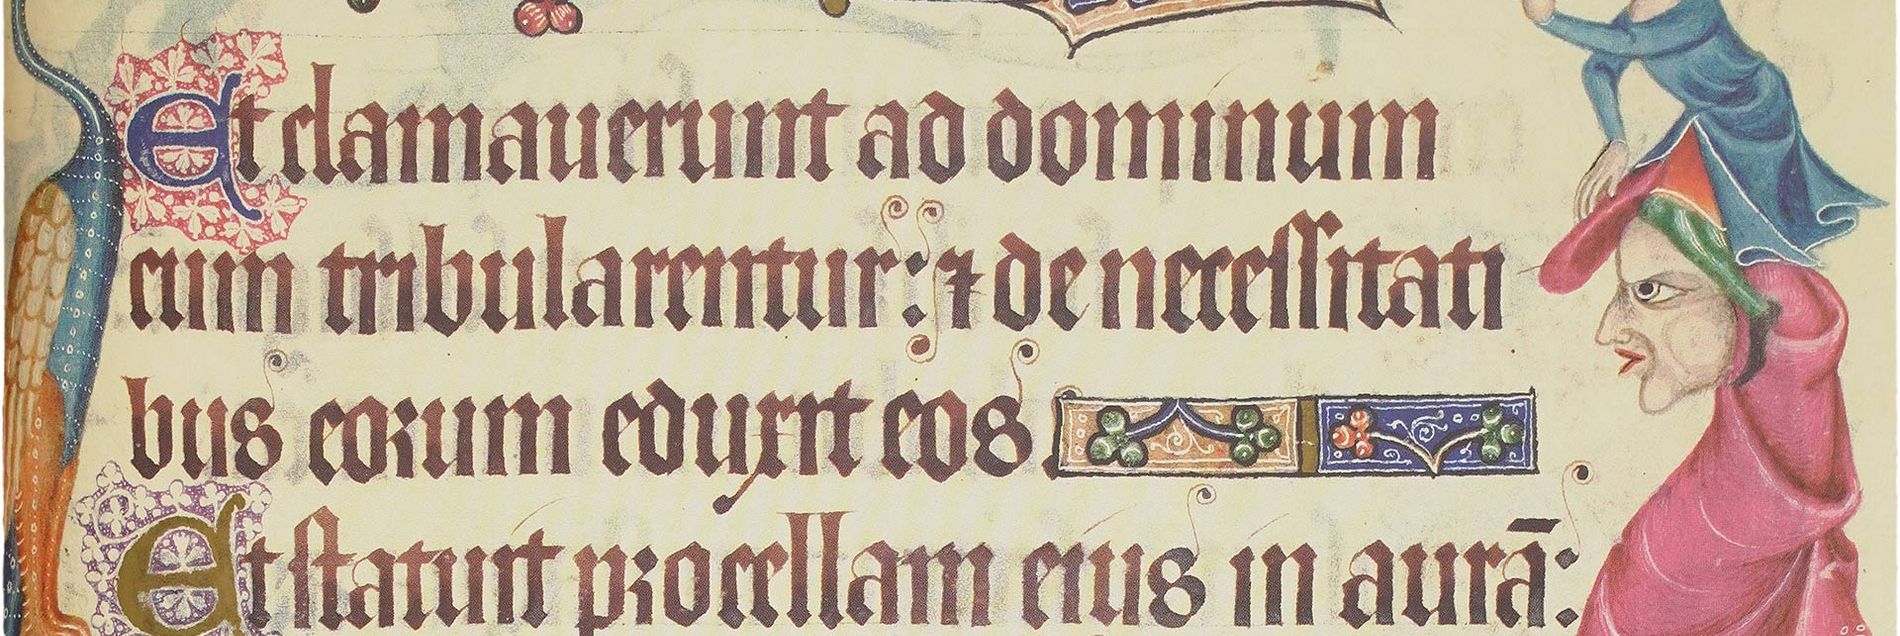 Et clamauerunt ad dominum
cum tribularentur: ⁊ de necessitati
bus eorum eduxit eos
Et statuit procellam eius in aurā: